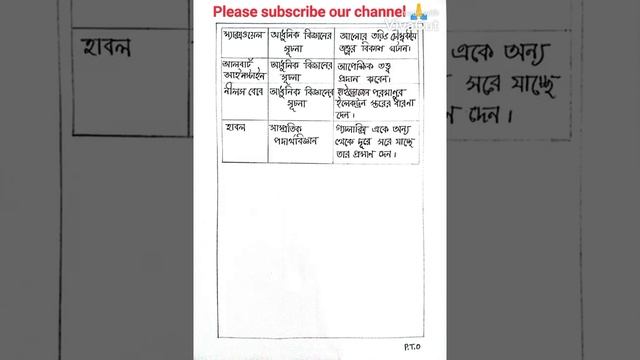 Please subscribe our channel 🙏
ম্যাক্সওয়েল আধুনিক বিজ্ঞানের আলোর তড়িৎ চৌম্বকীয়
সূচনা তত্ত্বের বিকাশ ঘটান।
আলবার্ট আধুনিক বিজ্ঞানের আপেক্ষিক তত্ত্ব
আইনস্টাইন সূচনা প্রদান করেন।
নীলস বোর আধুনিক বিজ্ঞানের হাইড্রোজেন পরমাণুর
সূচনা ইলেকট্রন স্তরের ধারণা
দেন।
হাবল সাম্প্রতিক গ্যালাক্সি একে অন্য
পদার্থবিজ্ঞান থেকে দূরে সরে যাচ্ছে
তার প্রমাণ দেন।
P.T.O
হাবল
একে অন্য
সরে যাচ্ছে
দেন।